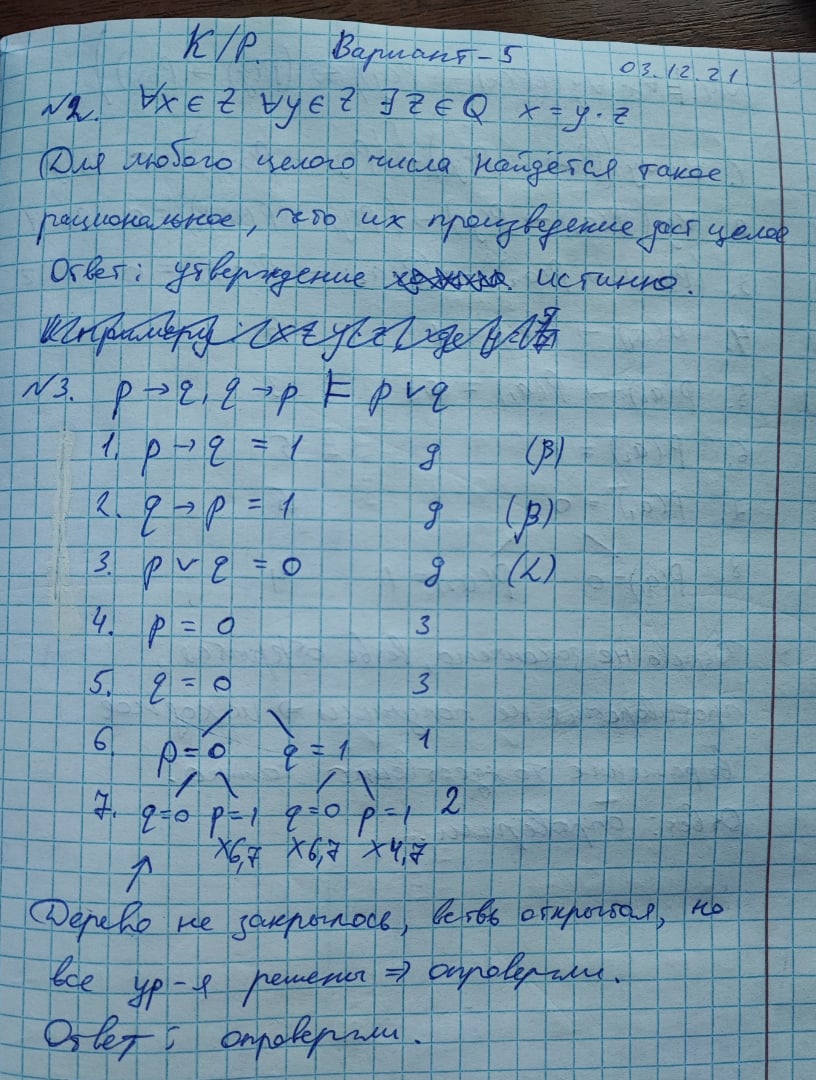 К/Р. Вариант-5 03.12.21.
№2. ∀x ∈ Z ∀y ∈ Z ∃ z ∈ Q x = y · z
Для любого целого числа найдётся такое
рациональное, что их произведение даст целое
Ответ: утверждение истинно.
№3. p → q, q → p ⊨ p ∨ q
1. p → q = 1 g (β)
2. q → p = 1 g (β)
3. p ∨ q = 0 g (α)
4. p = 0 3
5. q = 0 3
6. p = 0 q = 1 1
7. q=0 p=1 q=0 p=1 2
×6,7 ×6,7 ×4,7
Дерево не закрылось, ветвь открытая, но
все ур-я решены ⇒ опровергли.
Ответ: опровергли.